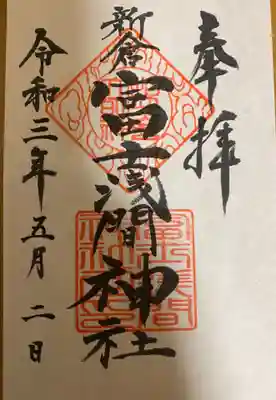 奉拝
新倉
富士浅間神社
令和三年五月二日